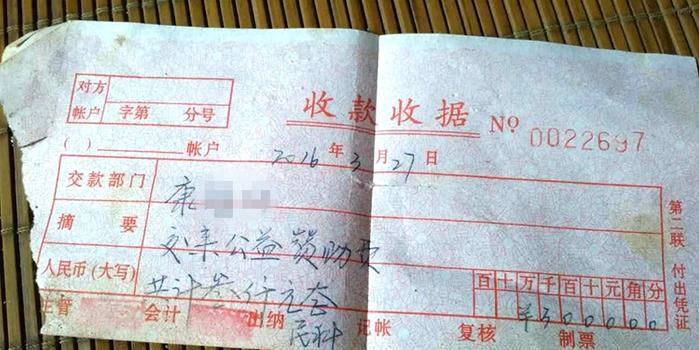 对方
帐户 字第 分号
收款收据 Nº 0022697
( ) 帐户 2016年3月27日
交款部门 康
摘要 交来公益资助费
人民币(大写) 共计叁仟元 百十万千百十元角分
¥300000
主管 会计 出纳 记帐 复核 制票
第二联 付出凭证